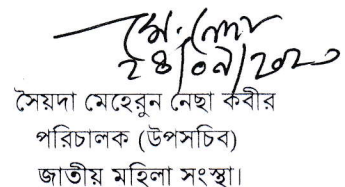 ২৪/০৯/২০২০
সৈয়দা মেহেরুন নেছা কবীর
পরিচালক (উপসচিব)
জাতীয় মহিলা সংস্থা।